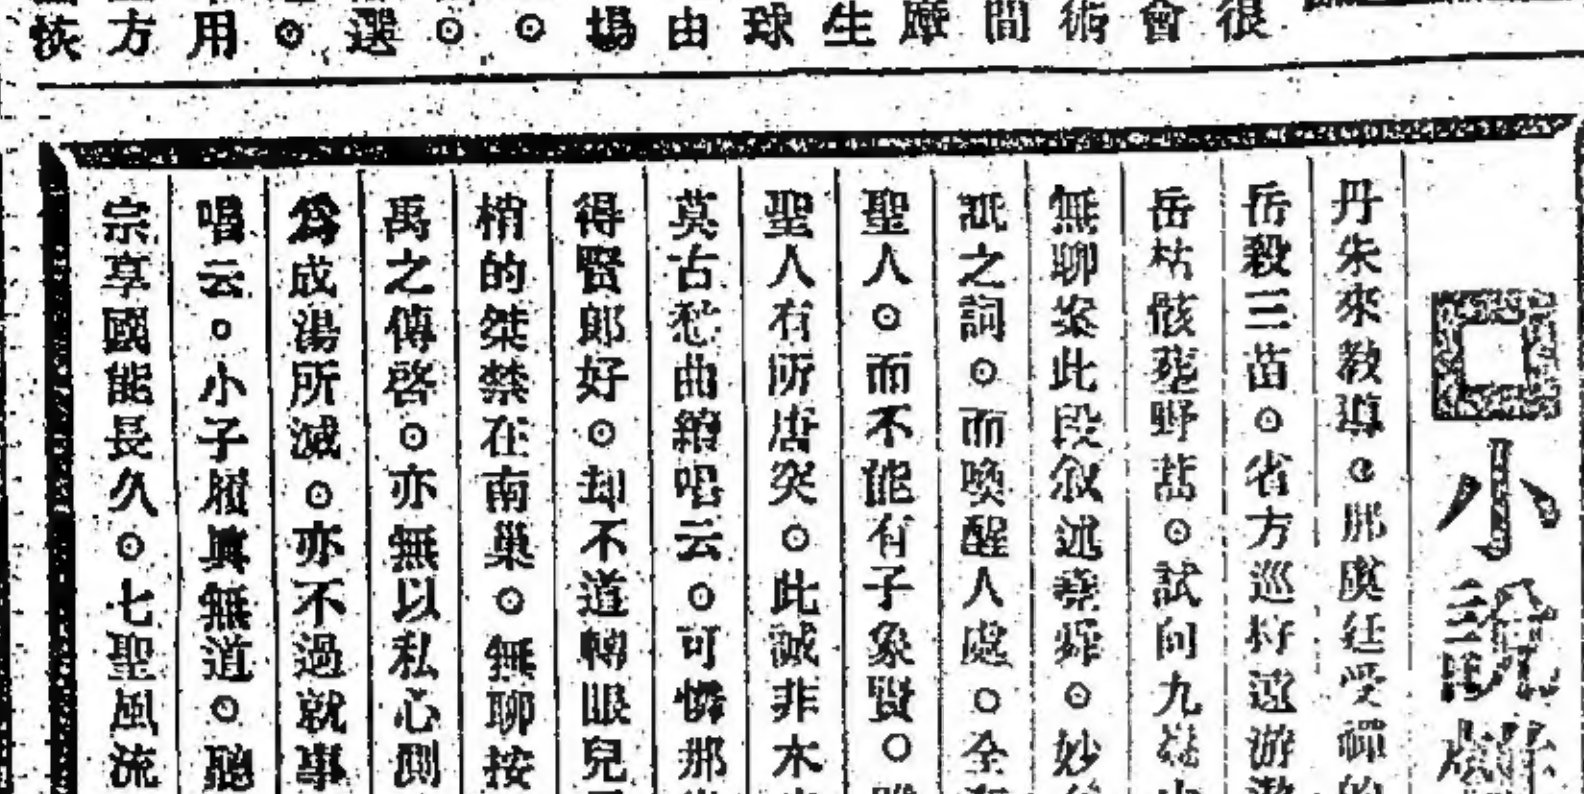 很會術間摩生球由場。。選。用方族
小說
丹朱來教導。那虞廷受禪的
岳殺三苗。省方巡狩遠游
岳枯骸葬野蒿。試向九疑
無聊案此段叙述堯舜。妙
詆之詞。而喚醒人處。全
聖人。而不能有子象賢。
聖人有所唐突。此誠非木
莫古愁曲續唱云。可憐那
得賢郎好。却不道轉眼兒
梢的桀禁在南巢。無聊按
禹之傳啓。亦無以私心測
爲成湯所滅。亦不過就事
唱云。小子履眞無道。聽
宗享國能長久。七聖風流